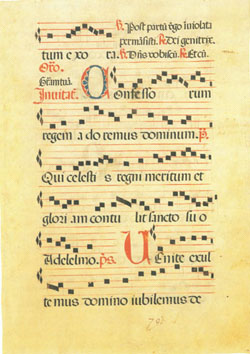 ℟. Post partū v̄go īuiolata
permāsisti. ℟. Dei genitrix.
tum exo ta. ℟. Dn̄s vobiscū. ℟. Et cū.
Inuitat̄. Confesso rum
regem a do remus dominum. p̄s.
Qui celesti s regni meritum et
glori am contu lit sancto su o
Adelelmo. p̄s. Uenite exul
temus domino iubilemus de